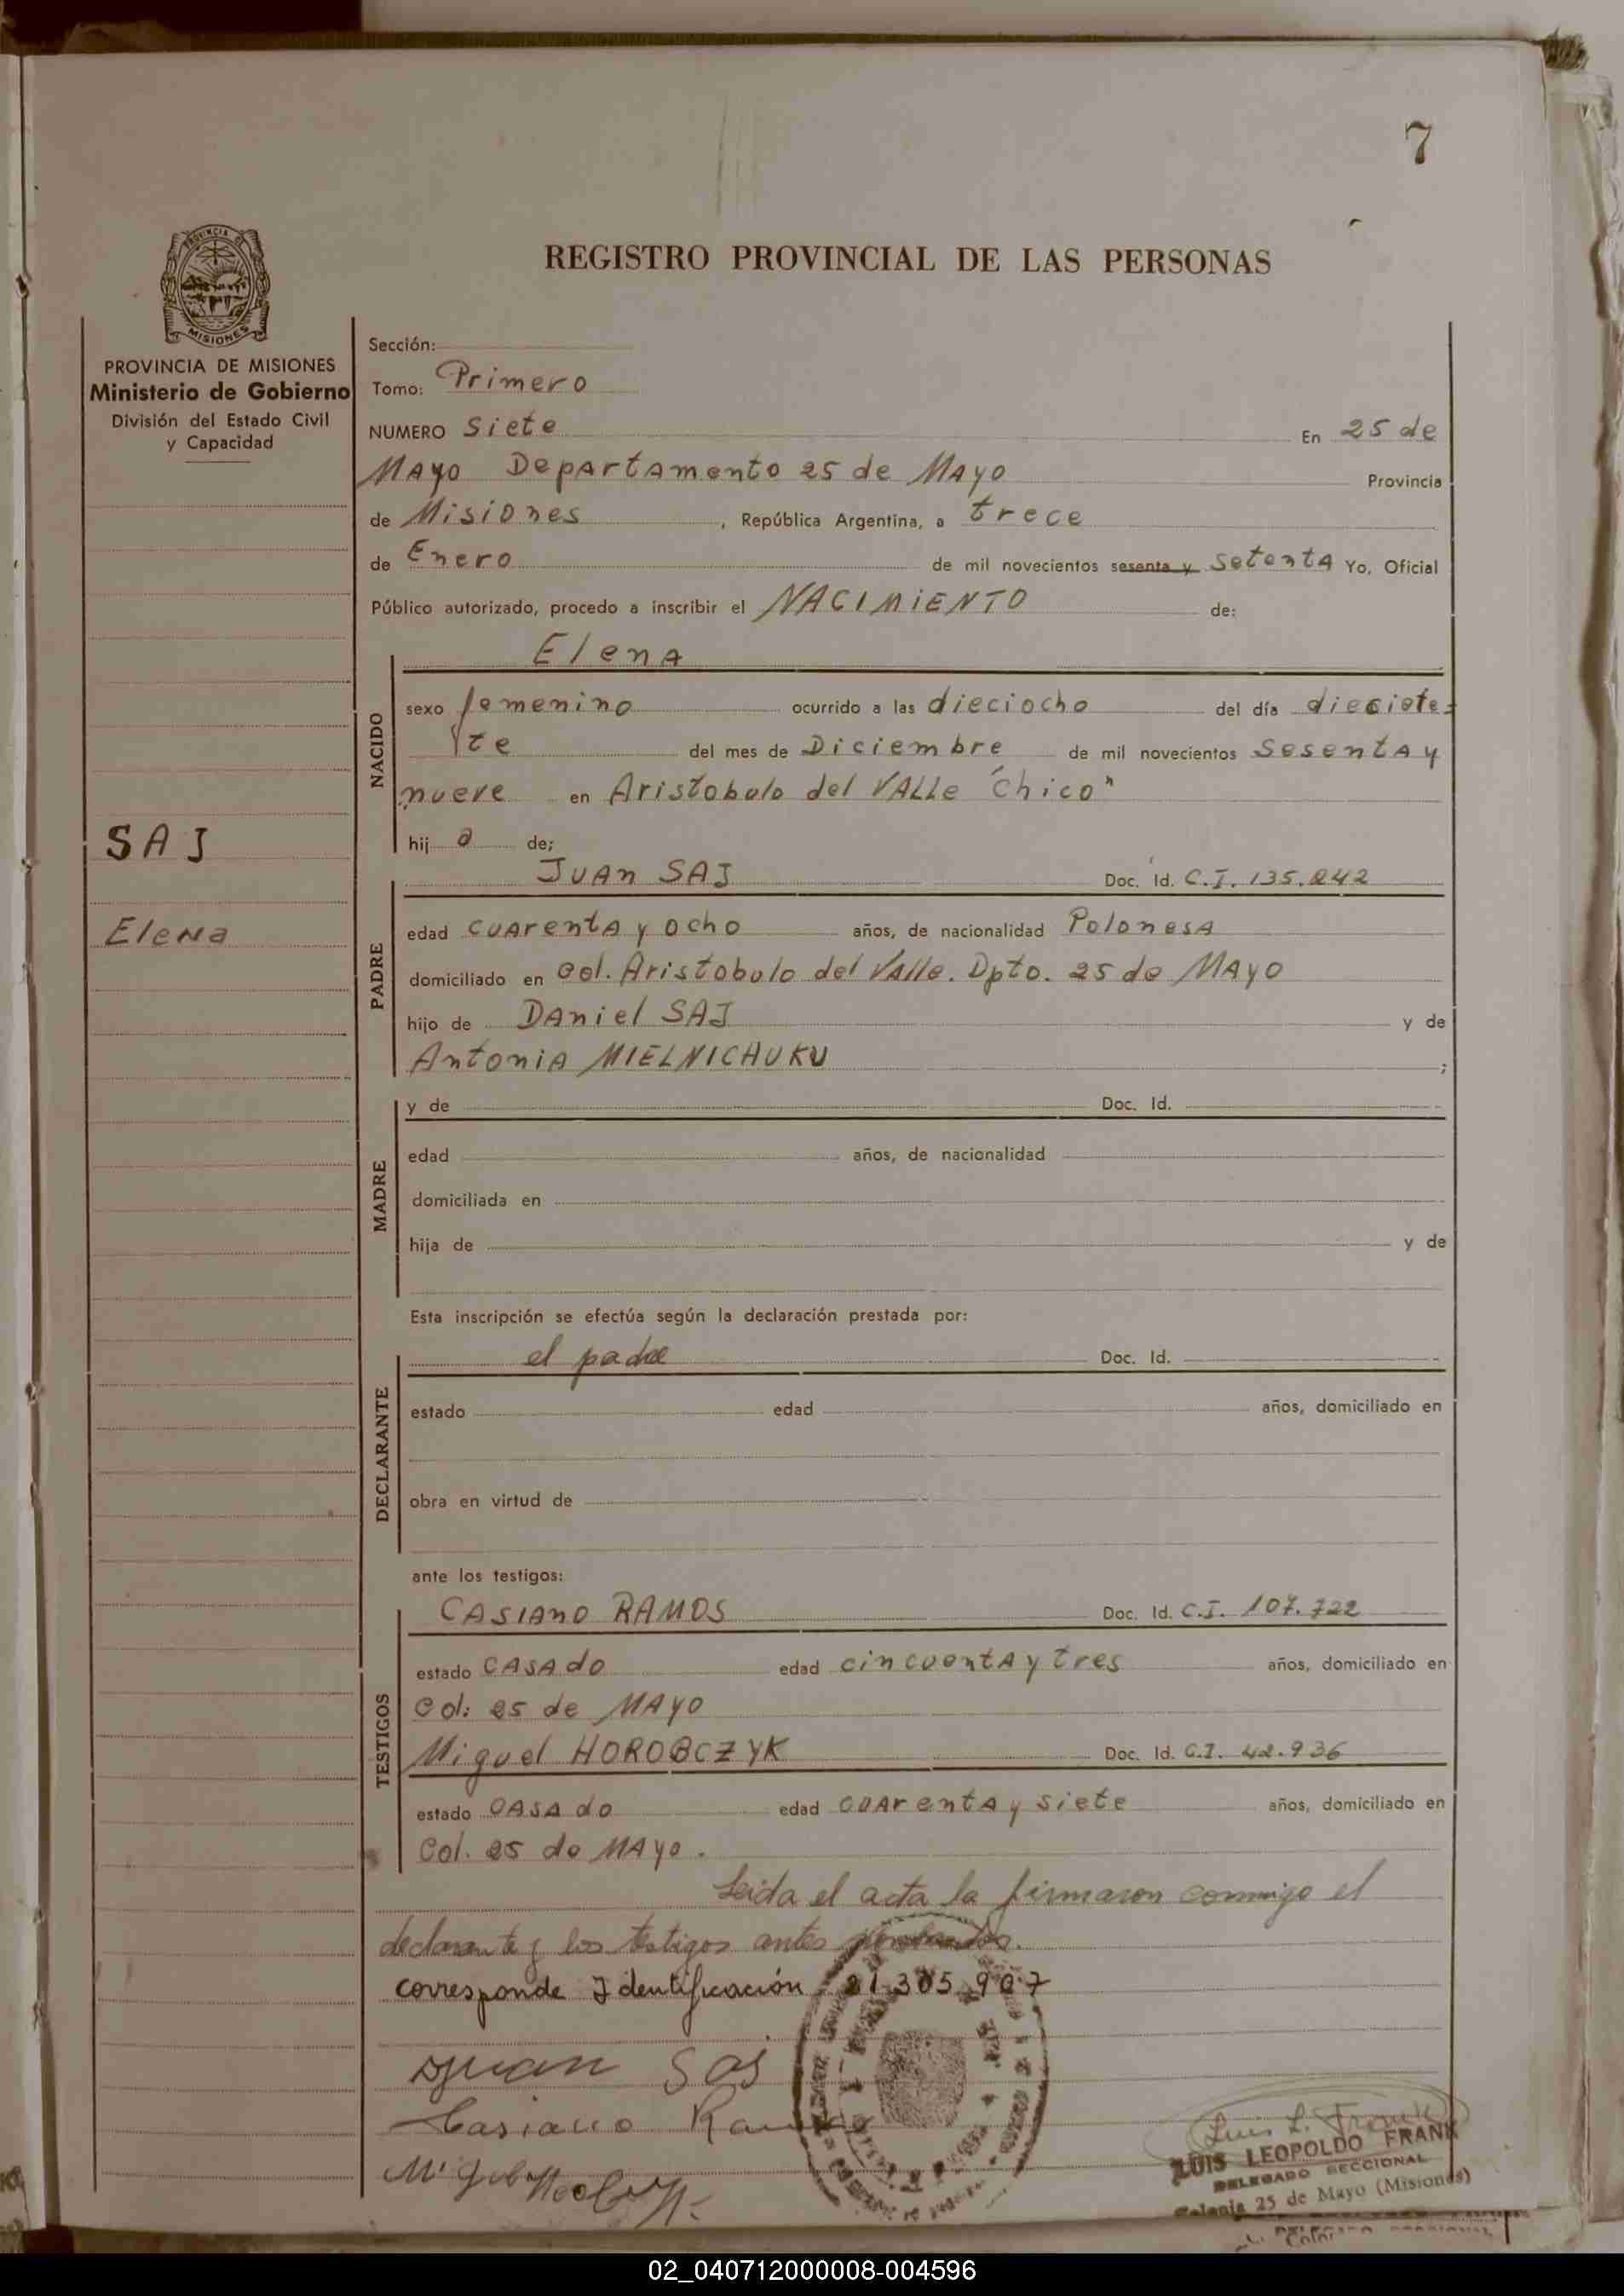 7
PROVINCIA DE
MISIONES
REGISTRO PROVINCIAL DE LAS PERSONAS
PROVINCIA DE MISIONES
Ministerio de Gobierno
División del Estado Civil
y Capacidad
SAJ
Elena
Sección:
Tomo: Primero
NUMERO Siete En 25 de
Mayo Departamento 25 de Mayo Provincia
de Misiones, República Argentina, a trece
de Enero de mil novecientos sesenta y setenta Yo, Oficial
Público autorizado, procedo a inscribir el NACIMIENTO de:
Elena
NACIDO
sexo femenino ocurrido a las dieciocho del día diesiete=
te del mes de Diciembre de mil novecientos Sesenta y
nueve en Aristobulo del VALLe "Chico"
hij a de;
PADRE
Juan SAJ Doc. Id. C.I. 135.242
edad cuarenta y ocho años, de nacionalidad Polonesa
domiciliado en Col. Aristobulo del Valle. Dpto. 25 de Mayo
hijo de Daniel SAJ y de
Antonia MIELNICHUKU ;
MADRE
y de Doc. Id.
edad años, de nacionalidad
domiciliada en
hija de y de
Esta inscripción se efectúa según la declaración prestada por:
DECLARANTE
el padre Doc. Id.
estado edad años, domiciliado en
obra en virtud de
ante los testigos:
TESTIGOS
CASIANO RAMOS Doc. Id. C.I. 107.722
estado casado edad cincuenta y tres años, domiciliado en
Col: 25 de Mayo
Miguel HOROBCZYK Doc. Id. C.I. 42.936
estado casado edad cuarenta y siete años, domiciliado en
Col. 25 de Mayo.
Leida el acta la firmaron conmigo el
declarante y los testigos antes
corresponde Identificación 21.305.907
Juan Saj
Casiano Ramos
Luis L. Frank
LUIS LEOPOLDO FRANK
DELEGADO SECCIONAL
Colonia 25 de Mayo (Misiones)
02_040712000008-004596